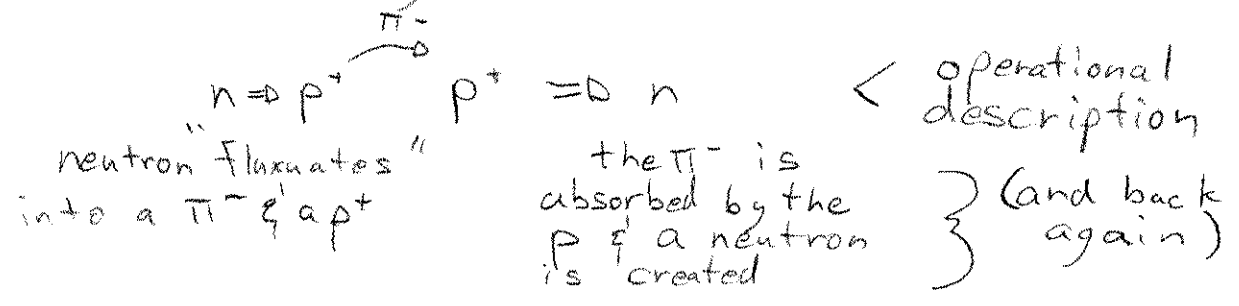 π⁻
n ⇒ p⁺ p⁺ ⇒ n < operational
description
neutron "fluxuates"
into a π⁻ & a p⁺
the π⁻ is
absorbed by the
p & a neutron
is created
} (and back
again)